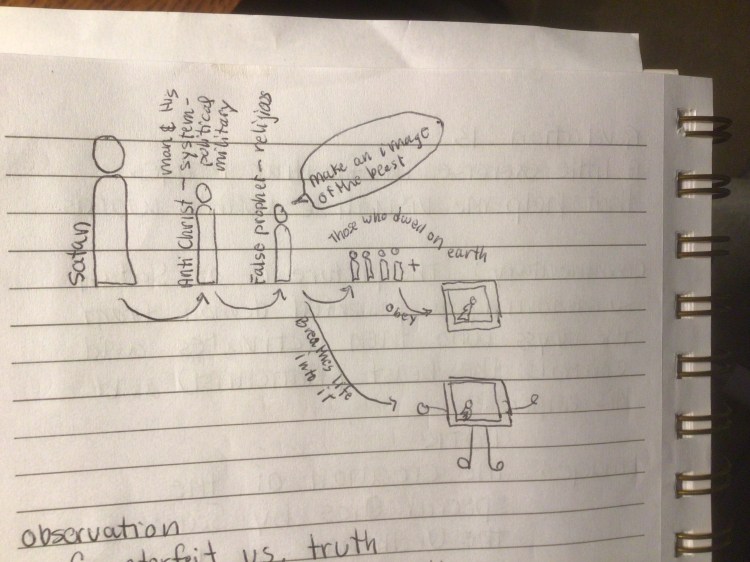 Satan
Anti Christ - man & His
system -
political
military
False propher - religias
make an image
of the beest
Those who dwell on earth
obey
Breathes life
into it
observation
Counterfeit vs. truth